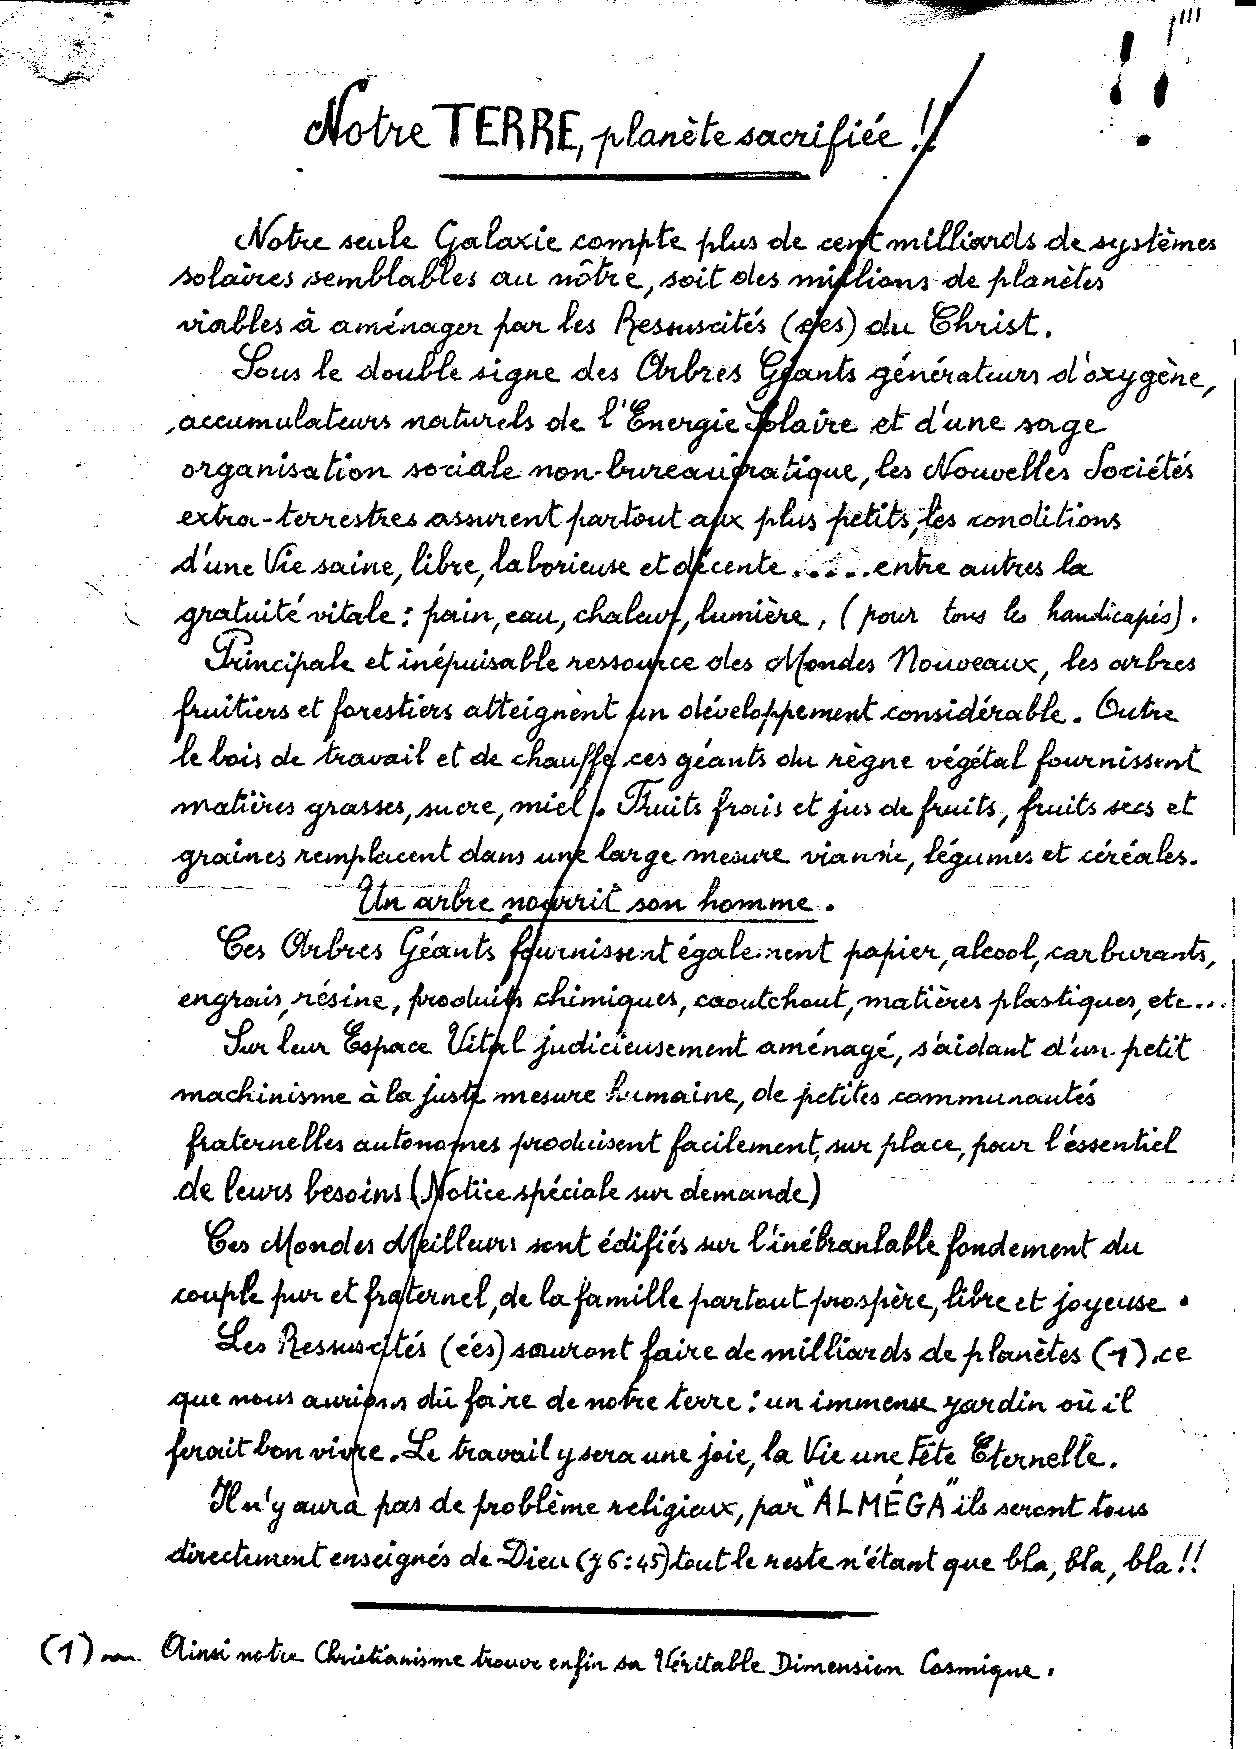 Notre TERRE, planète sacrifiée !!
Notre seule Galaxie compte plus de cent milliards de systèmes
solaires semblables au nôtre, soit des millions de planètes
viables à aménager par les Ressuscités (ées) du Christ.
Sous le double signe des Arbres Géants générateurs d'oxygène,
accumulateurs naturels de l'Energie Solaire et d'une sage
organisation sociale non-bureaucratique, les Nouvelles Sociétés
extra-terrestres assurent partout aux plus petits, les conditions
d'une Vie saine, libre, laborieuse et décente..... entre autres la
gratuité vitale : pain, eau, chaleur, lumière, (pour tous les handicapés).
Principale et inépuisable ressource des Mondes Nouveaux, les arbres
fruitiers et forestiers atteignent un développement considérable. Outre
le bois de travail et de chauffe, ces géants du règne végétal fournissent
matières grasses, sucre, miel. Fruits frais et jus de fruits, fruits secs et
graines remplacent dans une large mesure viande, légumes et céréales.
Un arbre nourrit son homme.
Ces Arbres Géants fournissent également papier, alcool, carburants,
engrais, résine, produits chimiques, caoutchout, matières plastiques, etc...
Sur leur Espace Vital judicieusement aménagé, s'aidant d'un petit
machinisme à la juste mesure humaine, de petites communautés
fraternelles autonomes produisent facilement, sur place, pour l'essentiel
de leurs besoins (Notice spéciale sur demande)
Ces Mondes Meilleurs sont édifiés sur l'inébranlable fondement du
couple pur et fraternel, de la famille partout prospère, libre et joyeuse.
Les Ressuscités (ées) sauront faire de milliards de planètes (1) ce
que nous aurions dû faire de notre terre : un immense jardin où il
ferait bon vivre. Le travail y sera une joie, la Vie une Fête Eternelle.
Il n'y aura pas de problème religieux, par "ALMÉGA" ils seront tous
directement enseignés de Dieu (J 6:45) tout le reste n'étant que bla, bla, bla !!
(1) Ainsi notre Christianisme trouve enfin sa Véritable Dimension Cosmique.